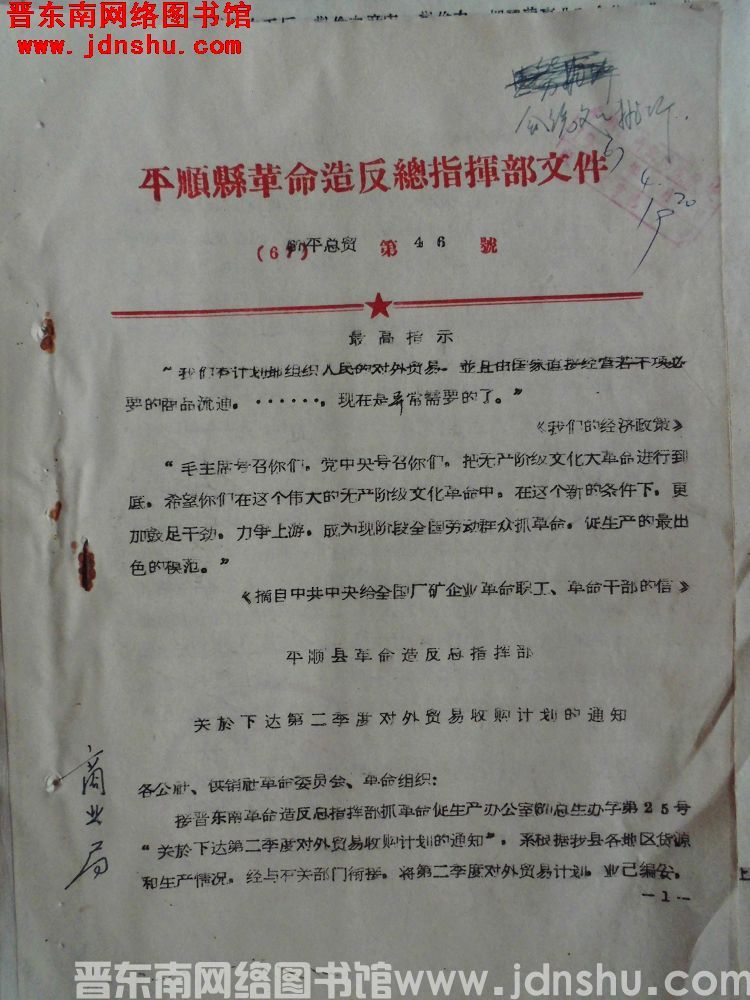 晋东南网络图书馆
www.jdnshu.com
平順縣革命造反總指揮部文件
(67)平总贸 第 46 號
最高指示
“我们有计划地组织人民的对外贸易。並且由国家直接经营若干项必
要的商品流通。······，现在是异常需要的了。”
《我们的经济政策》
“毛主席号召你们，党中央号召你们，把无产阶级文化大革命进行到
底。希望你们在这个伟大的无产阶级文化革命中，在这个新的条件下，更
加鼓足干劲，力争上游，成为现阶段全国劳动群众抓革命，促生产的最出
色的模范。”
《摘自中共中央给全国厂矿企业革命职工、革命干部的信》
平顺县革命造反总指挥部
关於下达第二季度对外贸易收购计划的通知
各公社、供销社革命委员会、革命组织：
接晋东南革命造反总指挥部抓革命促生产办公室 总生办字第25号
“关於下达第二季度对外贸易收购计划的通知”，系根据我县各地区货源
和生产情况，经与有关部门衔接，将第二季度对外贸易计划，业已编妥。
－1－
商业局
晋东南网络图书馆www.jdnshu.com